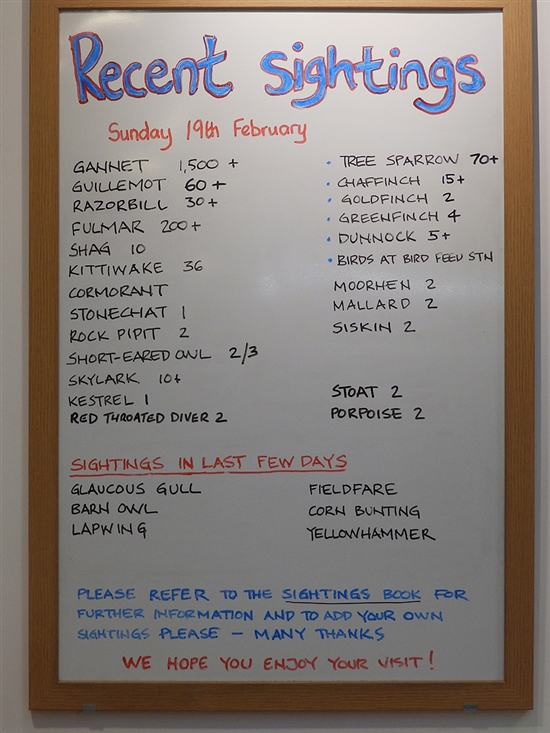 Recent Sightings
Sunday 19th February
GANNET 1,500 +
GUILLEMOT 60 +
RAZORBILL 30 +
FULMAR 200 +
SHAG 10
KITTIWAKE 36
CORMORANT
STONECHAT 1
ROCK PIPIT 2
SHORT-EARED OWL 2/3
SKYLARK 10+
KESTREL 1
RED THROATED DIVER 2
• TREE SPARROW 70+
• CHAFFINCH 15+
• GOLDFINCH 2
• GREENFINCH 4
• DUNNOCK 5+
• BIRDS AT BIRD FEED STN
MOORHEN 2
MALLARD 2
SISKIN 2
STOAT 2
PORPOISE 2
SIGHTINGS IN LAST FEW DAYS
GLAUCOUS GULL
BARN OWL
LAPWING
FIELDFARE
CORN BUNTING
YELLOWHAMMER
PLEASE REFER TO THE SIGHTINGS BOOK FOR
FURTHER INFORMATION AND TO ADD YOUR OWN
SIGHTINGS PLEASE – MANY THANKS
WE HOPE YOU ENJOY YOUR VISIT!